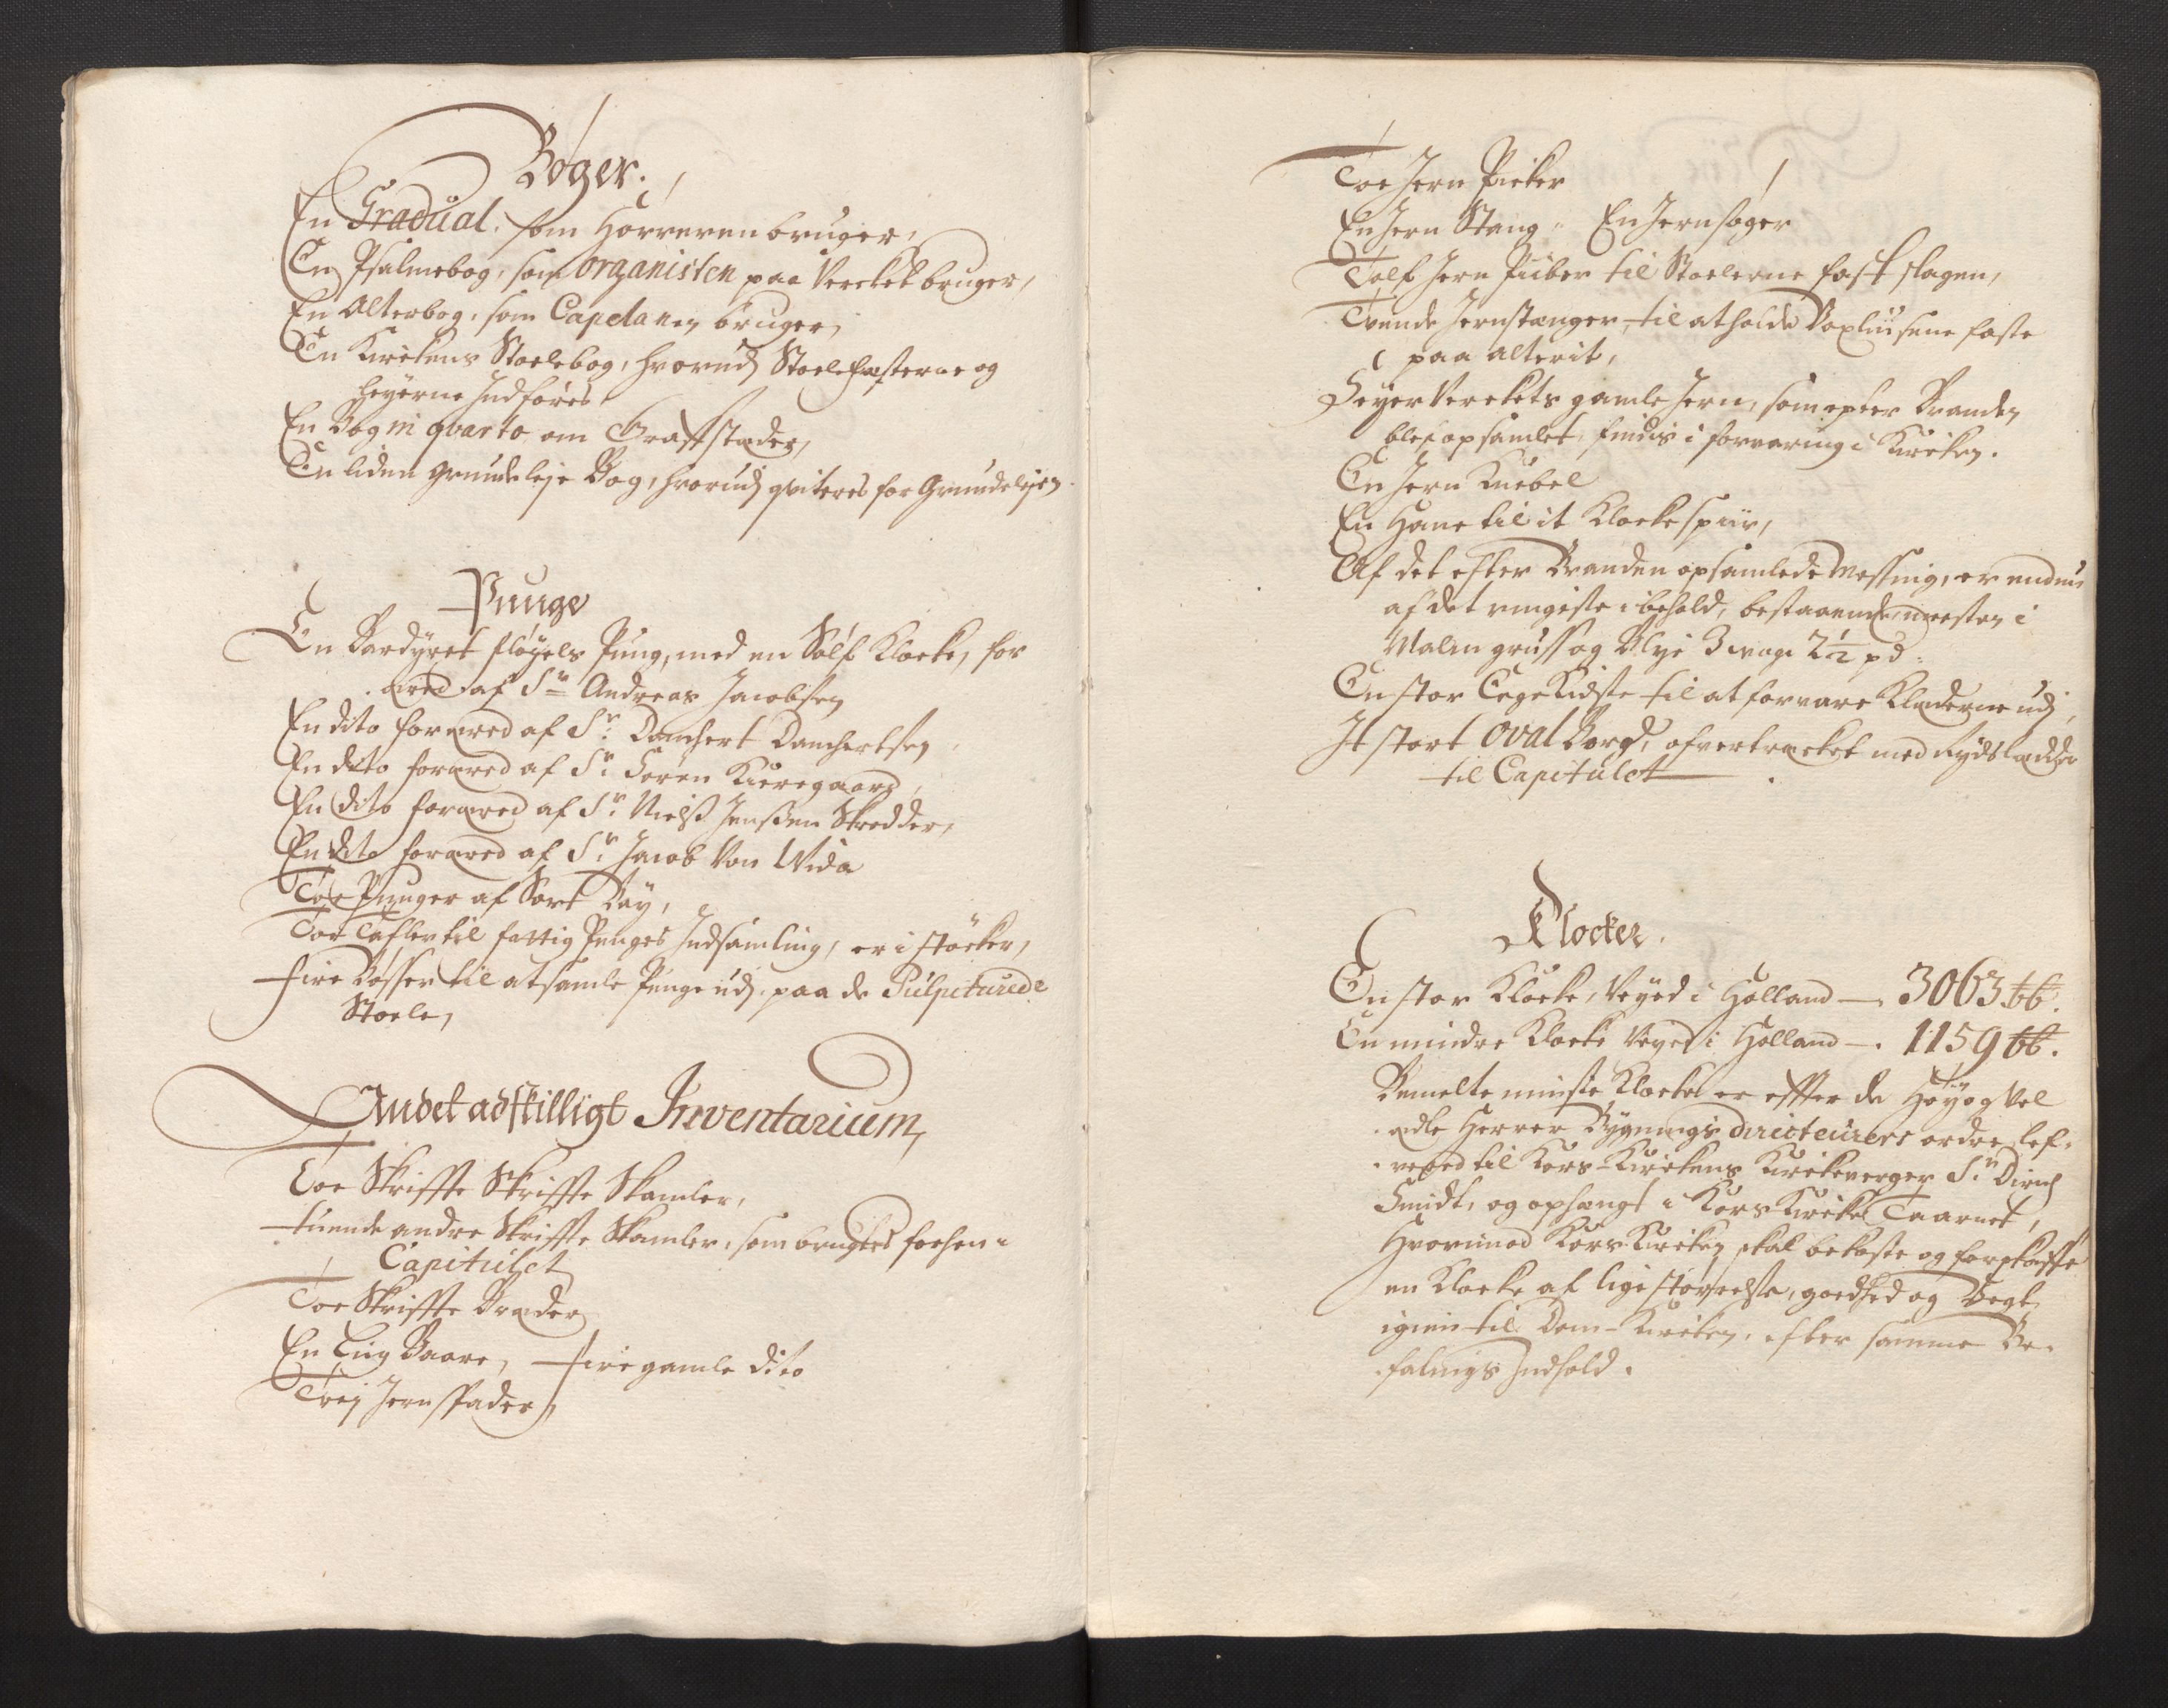 Bøger.
En Gradual, som Hørreren bruger,
En Psalmebog, som Organisten paa Vercket bruger,
En Alterbog, som Capelanen bruger,
En Kirckens Stoelebog, hvorudj Stoelefæsterne og
leyerne Indføres
En Bog in qvarto om Graffstæder,
En liden Grundeleje Bog, hvorudj qviteres for Grundelejen
Punge
En Bardyret fløyels Pung, med en Sølf Klocke, for
æred af Sr Andreas Jacobsen
En dito foræred af Sr. Danchert Danchertsen
En dito foræred af Sr. Søren Kieregaard,
En dito foræred af Sr. Nielß Jenßen Skredder,
En dito foræred af Sr. Jacob Von Wida
Toe Punger af Sort Bay,
Toe Tafler til fattig Penges Indsamling, er i støcker,
Fire Bøsser til at samle Penge udj paa de Pulpiturede
Stoele,
Andet adskilligt Inventarium,
Toe Skriffte Skriffte Skamler,
Tuende andre Skriffte Skamler, som brugtes forhen i
Capitulet
Toe Skriffte Bræder
En Liig Baare, Fire gamle dito
Toej Jern Spader,
Toe Jern Picker
En Jern Stang " En Jern søger
Tolf Jern Piiber til Stoelerne fast slagen,
Tvende Jernstænger, til at holde Voxliusene faste
paa Alterit,
Seyer Verckets gamle Jern, som epter Branden
blef opsamlet, findis i forvaring i Kircken.
En Jern Knebel
En Hane til it Klocke spiir,
Af det efter Branden opsamlede Messing, er endnu
af det ringeste i behold, bestaaende meesten i
Malm gruss og Blye 3 vog: 2½ pd:
En stor Eege Kidste til at forvare Klæderne udj,
It stort Oval Bord, ofvertrecket med Rydslædder
til Capitulet
Klocker.
En stor Klocke, Veyed i Holland — 3063 ℔.
En mindre Klocke Veyed i Holland —. 1159 ℔.
Bemelte minste Klocke er effter de Høy og Vel
ædle Herrer Bygnings Directeurers ordre lef-
vered til Kors-Kirckens Kirckeverger Sr. Dirich
Smidt, og ophengt i Kors Kircke Taarnet,
Hvorimod Kors Kircken skal bekoste og forskaffe
en Klocke af lige størrelse, goedhed og Vegt
igien til Dom-Kircken, efter samme Be-
falnings Indhold.